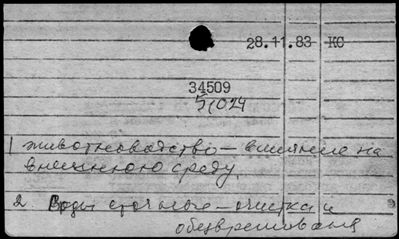 28.11.83 KC
34509
51024
1 животноводство – влияние на
внешнюю среду.
2. Воды сточные – очистка и
обезвреживание